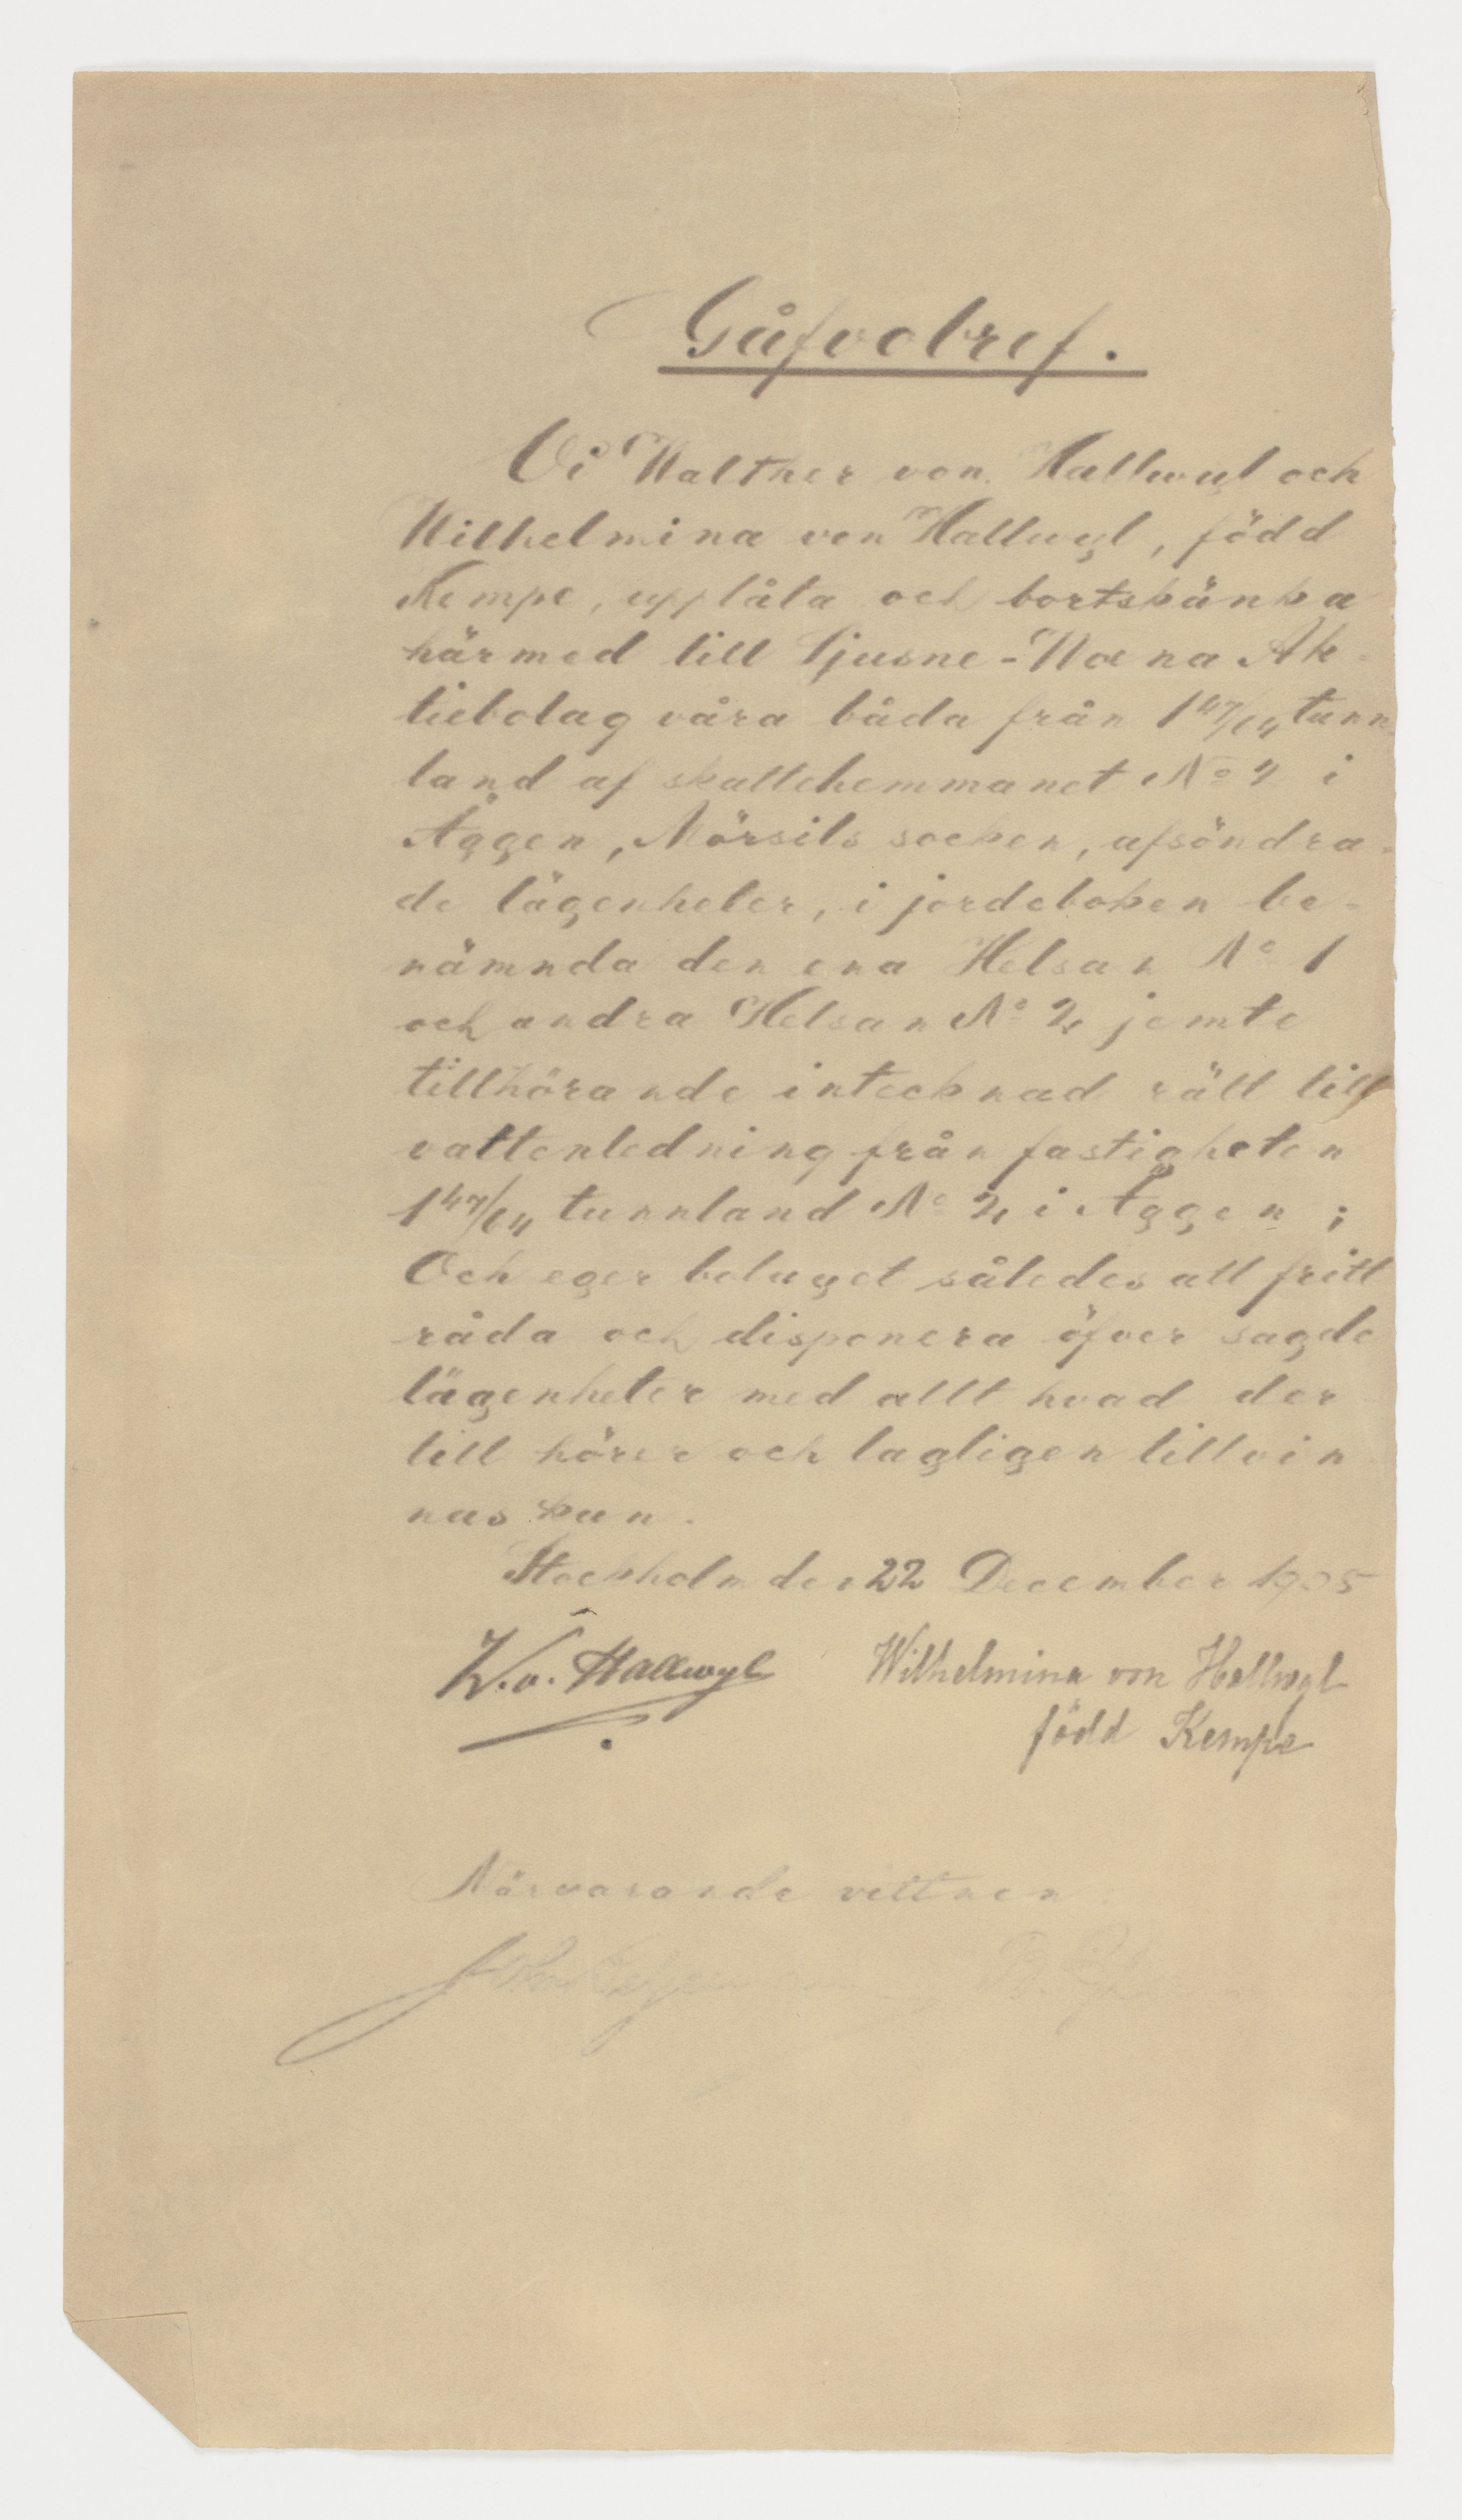 Gåfvobref.
Vi Walther von Hallwyl och
Wilhelmina von Hallwyl, född
Kempe, upplåta och bortskänka
härmed till Ljusne-Woxna Ak-
tiebolag våra båda från 1 47/64 tunn
land af skattehemmanet No 2 i
Äggen, Mörsils socken, afsöndra-
de lägenheter, i jordeboken be-
nämnda den ena Helsan No 1
och andra Helsan No 2 jemte
tillhörande intecknad rätt till
vattenledning från fastigheten
1 47/64 tunnland No 2 i Äggen;
Och eger bolaget således att fritt
råda och disponera öfver sagde
lägenheter med allt hvad der
till hörer och lagligen tillvin
nas kan.
Stockholm den 22 December 1905
W. v. Hallwyl Wilhelmina von Hallwyl
född Kempe
Närvarande vittnen: